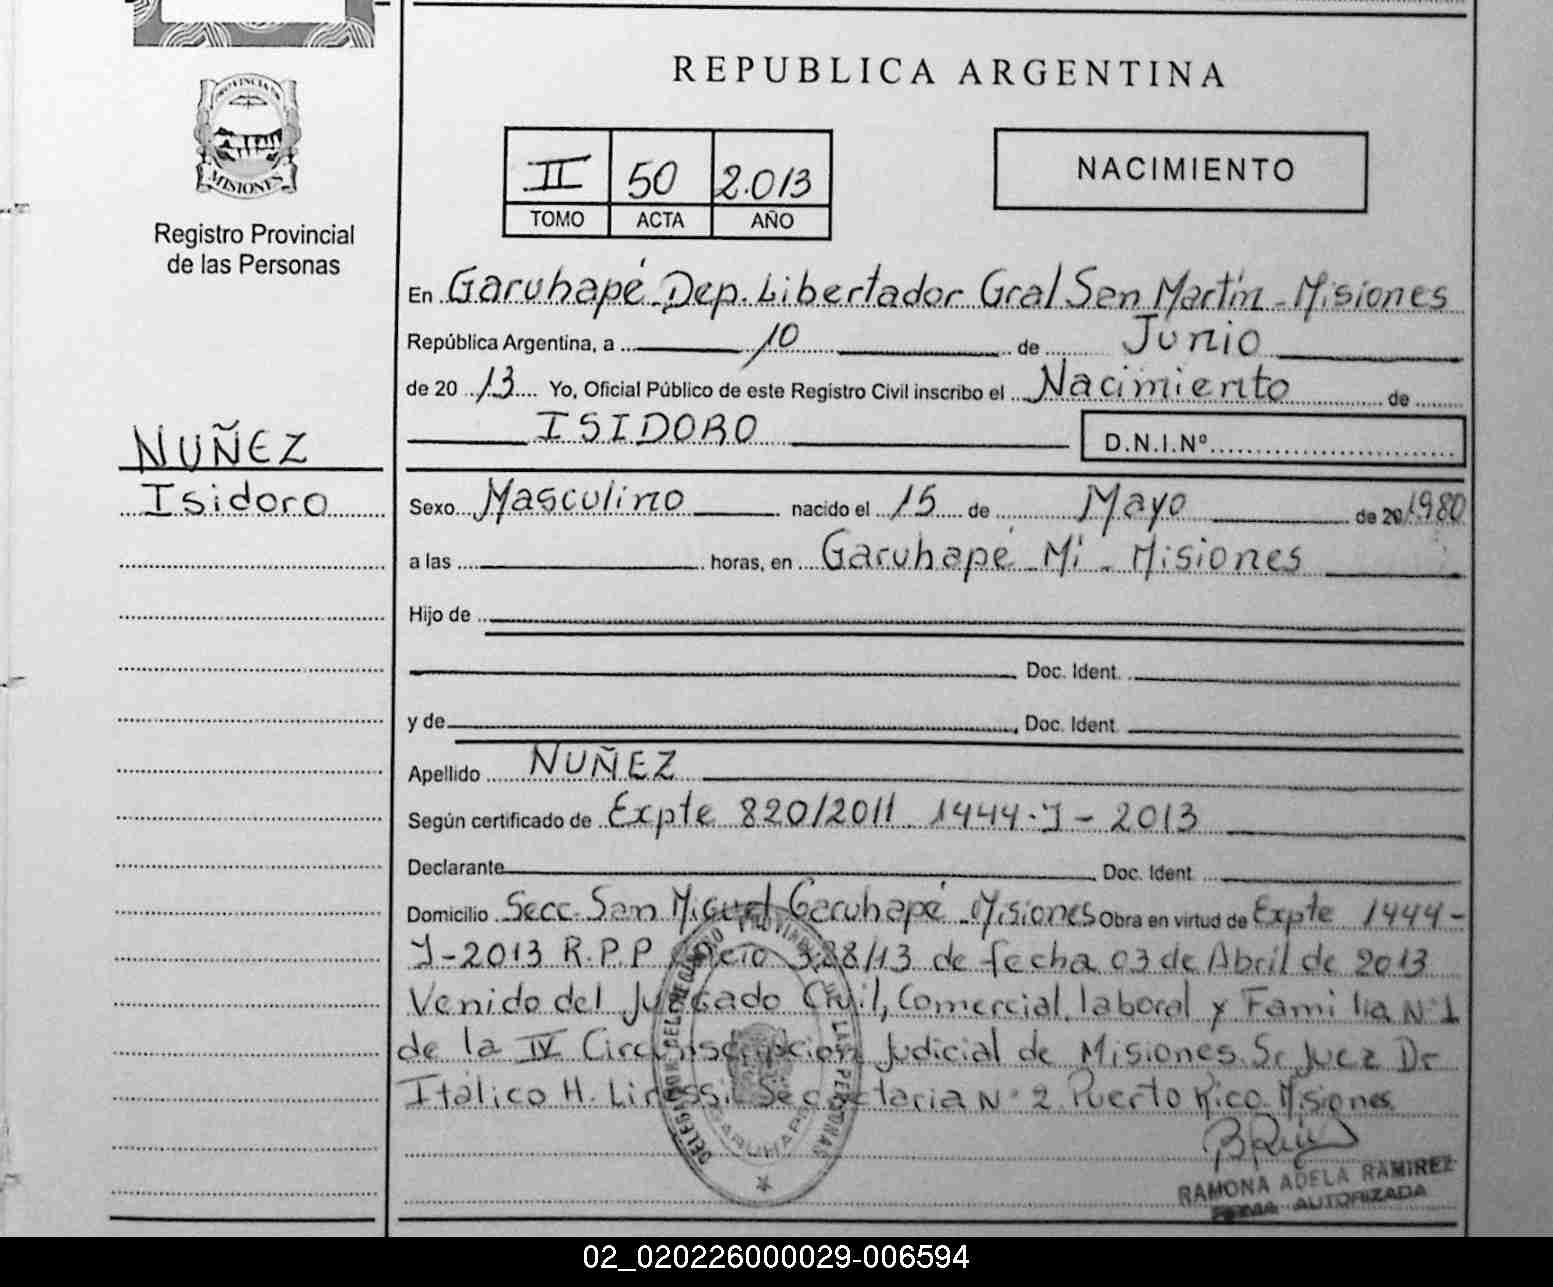 PROVINCIA DE
MISIONES
Registro Provincial
de las Personas
NUÑEZ
Isidoro
REPUBLICA ARGENTINA
II 50 2.013
TOMO ACTA AÑO
NACIMIENTO
En Garuhapé Dep. Libertador Gral San Martín - Misiones
República Argentina, a 10 de Junio
de 20 13 Yo, Oficial Público de este Registro Civil inscribo el Nacimiento de
ISIDORO D.N.I.Nº
Sexo Masculino nacido el 15 de Mayo de 20 1980
a las horas, en Garuhapé Mi - Misiones
Hijo de
Doc. Ident.
y de Doc. Ident.
Apellido NUÑEZ
Según certificado de Expte 820/2011 1444-J-2013
Declarante Doc. Ident.
Domicilio Secc. San Miguel Garuhapé - Misiones Obra en virtud de Expte 1444-
J-2013 R.P.P Oficio 328/13 de fecha 03 de Abril de 2013
Venido del Juzgado Civil, Comercial, laboral y Familia N°1
de la IV Circunscripcion Judicial de Misiones. Sr Juez Dr
Itálico H. Secretaria N° 2 Puerto Rico. Misiones
RAMONA ADELA RAMIREZ
FIRMA AUTORIZADA
02_020226000029-006594